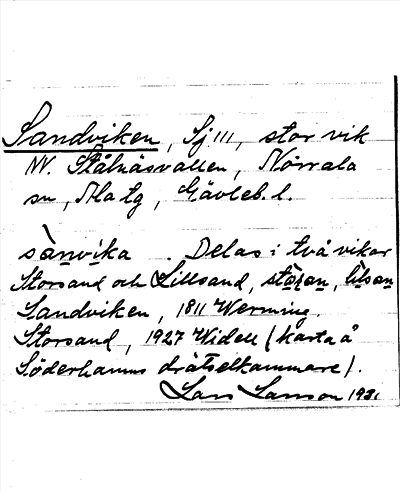 Sandviken, Sj III, stor vik
NV. Stålnäsvallen, Norrala
sn, Ala tg, Gävleb. l.
sànvíka. Delas i två vikar
Storsand och Lillsand, stòṣaṇ, lìlsaṇ
Sandviken, 1811 Werming.
Storsand, 1927 Widell (karta å
Söderhamns drätselkammare).
Lars Larsson 1931